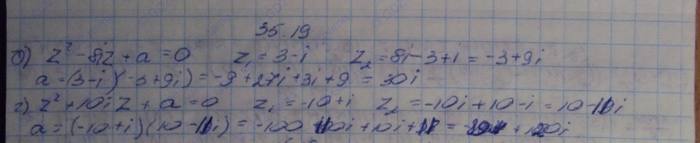 35.19
б) z² - 8iz + a = 0 z₁ = 3-i z₂ = 8i-3+i = -3+9i
a = (3-i)(-3+9i) = -9+27i+3i+9 = 30i
г) z² + 10iz + a = 0 z₁ = -10+i z₂ = -10i+10-i = 10-11i
a = (-10+i)(10-11i) = -100 + 110i + 10i + 11 = + 120i